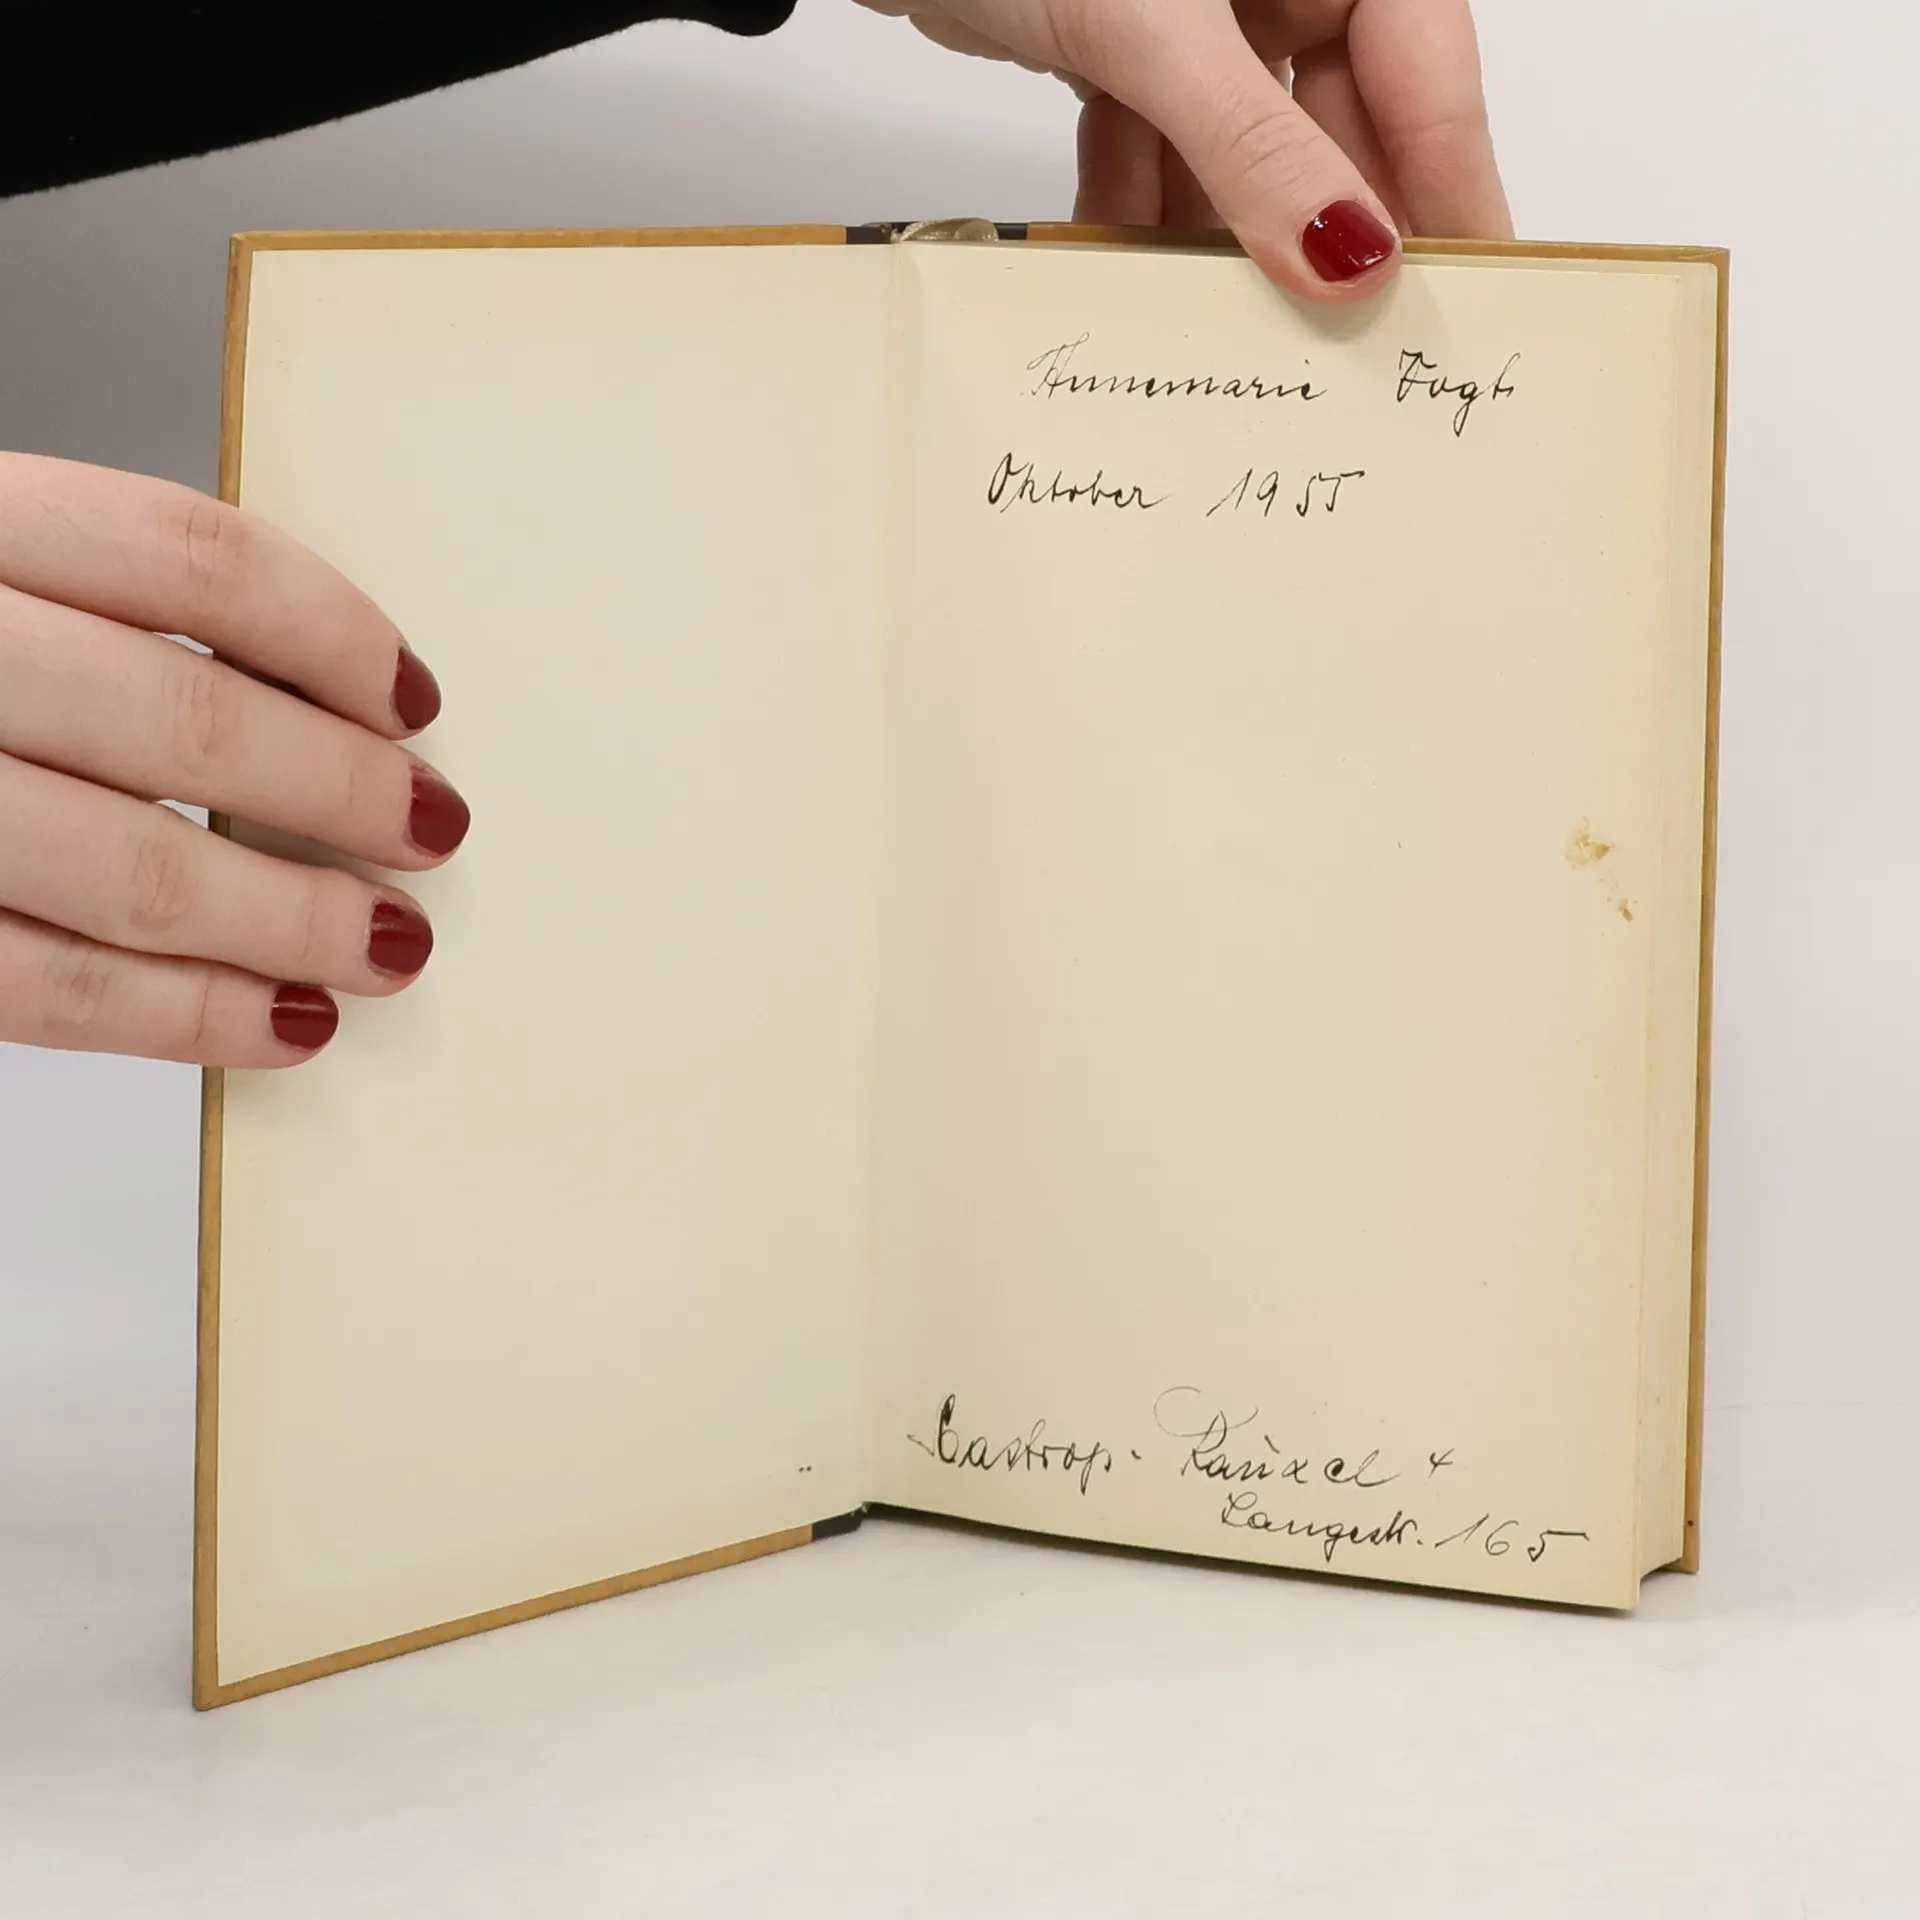 Annemarie Vogt
Oktober 1955
Castrop-Rauxel 4
Langestr. 165